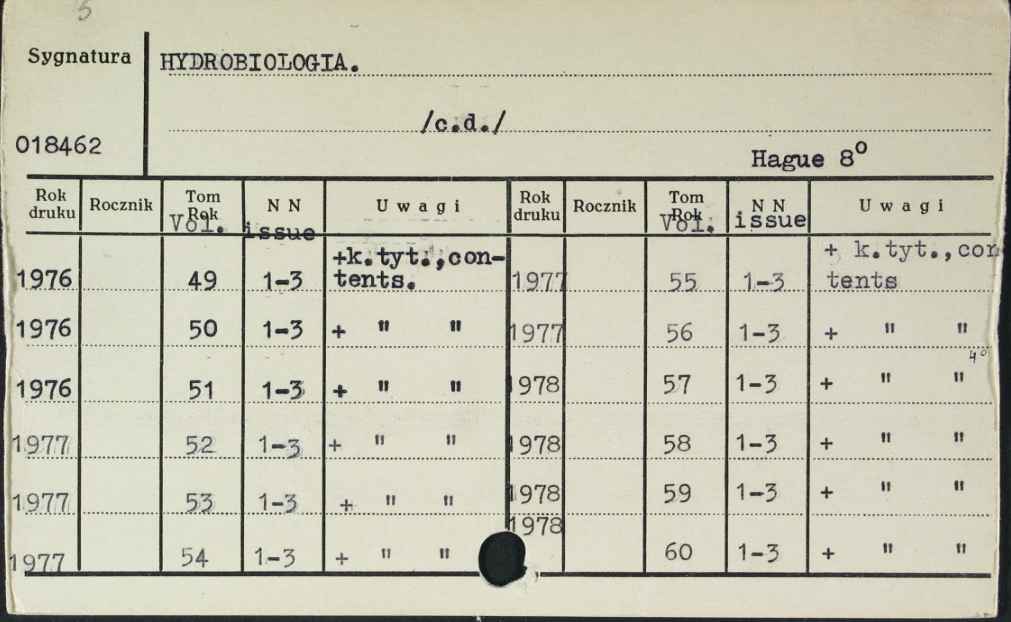 5
Sygnatura HYDROBIOLOGIA.
/c.d./
018462
Hague 8°
Rok druku Rocznik Tom Rok Vol. N N issue U w a g i Rok druku Rocznik Tom Rok Vol. N N issue U w a g i
1976 49 1-3 +k.tyt.,con-tents. 1977 55 1-3 + k.tyt.,con tents
1976 50 1-3 + " " 1977 56 1-3 + " "
4°
1976 51 1-3 + " " 1978 57 1-3 + " "
1977 52 1-3 + " " 1978 58 1-3 + " "
1977 53 1-3 + " " 1978 59 1-3 + " "
1977 54 1-3 + " " 1978 60 1-3 + " "